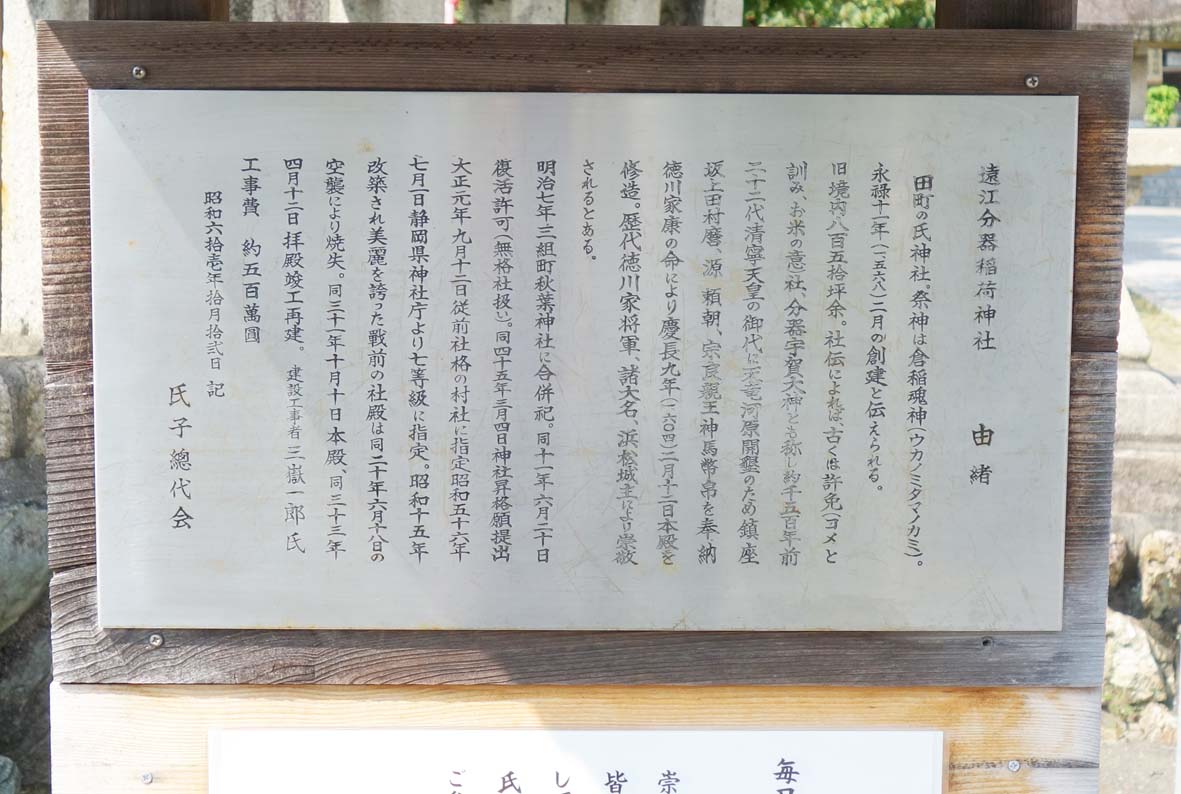 遠江分器稲荷神社　由緒
田町の氏神社。祭神は倉稲魂神(ウカノミタマノカミ)。
永禄十一年(一五六八)二月の創建と伝えられる。
旧境内八百五拾坪余。社伝によれば、古くは許免(ヨメと
訓み、お米の意)社、分器宇賀大神とも称し約千五百年前
二十二代清寧天皇の御代に天竜河原開墾のため鎮座
坂上田村麿、源頼朝、宗良親王神馬幣帛を奉納
徳川家康の命により慶長九年(一六〇四)二月十二日本殿を
修造。歴代徳川家将軍、諸大名、浜松城主により崇敬
されるとある。
明治七年三組町秋葉神社に合併祀。同十一年六月二十日
復活許可(無格社扱い)。同四十五年三月四日神社昇格願提出
大正元年九月十二日従前社格の村社に指定昭和五十六年
七月一日静岡県神社庁より七等級に指定。昭和十五年
改築され美麗を誇った戦前の社殿は同二十年六月十八日の
空襲により焼失。同三十一年十月十日本殿、同三十三年
四月十二日拝殿竣工再建。建設工事者三嶽一郎氏
工事費　約五百萬圓
昭和六拾壱年拾月拾弐日　記
氏子總代会
毎
崇
皆
し
氏
ご